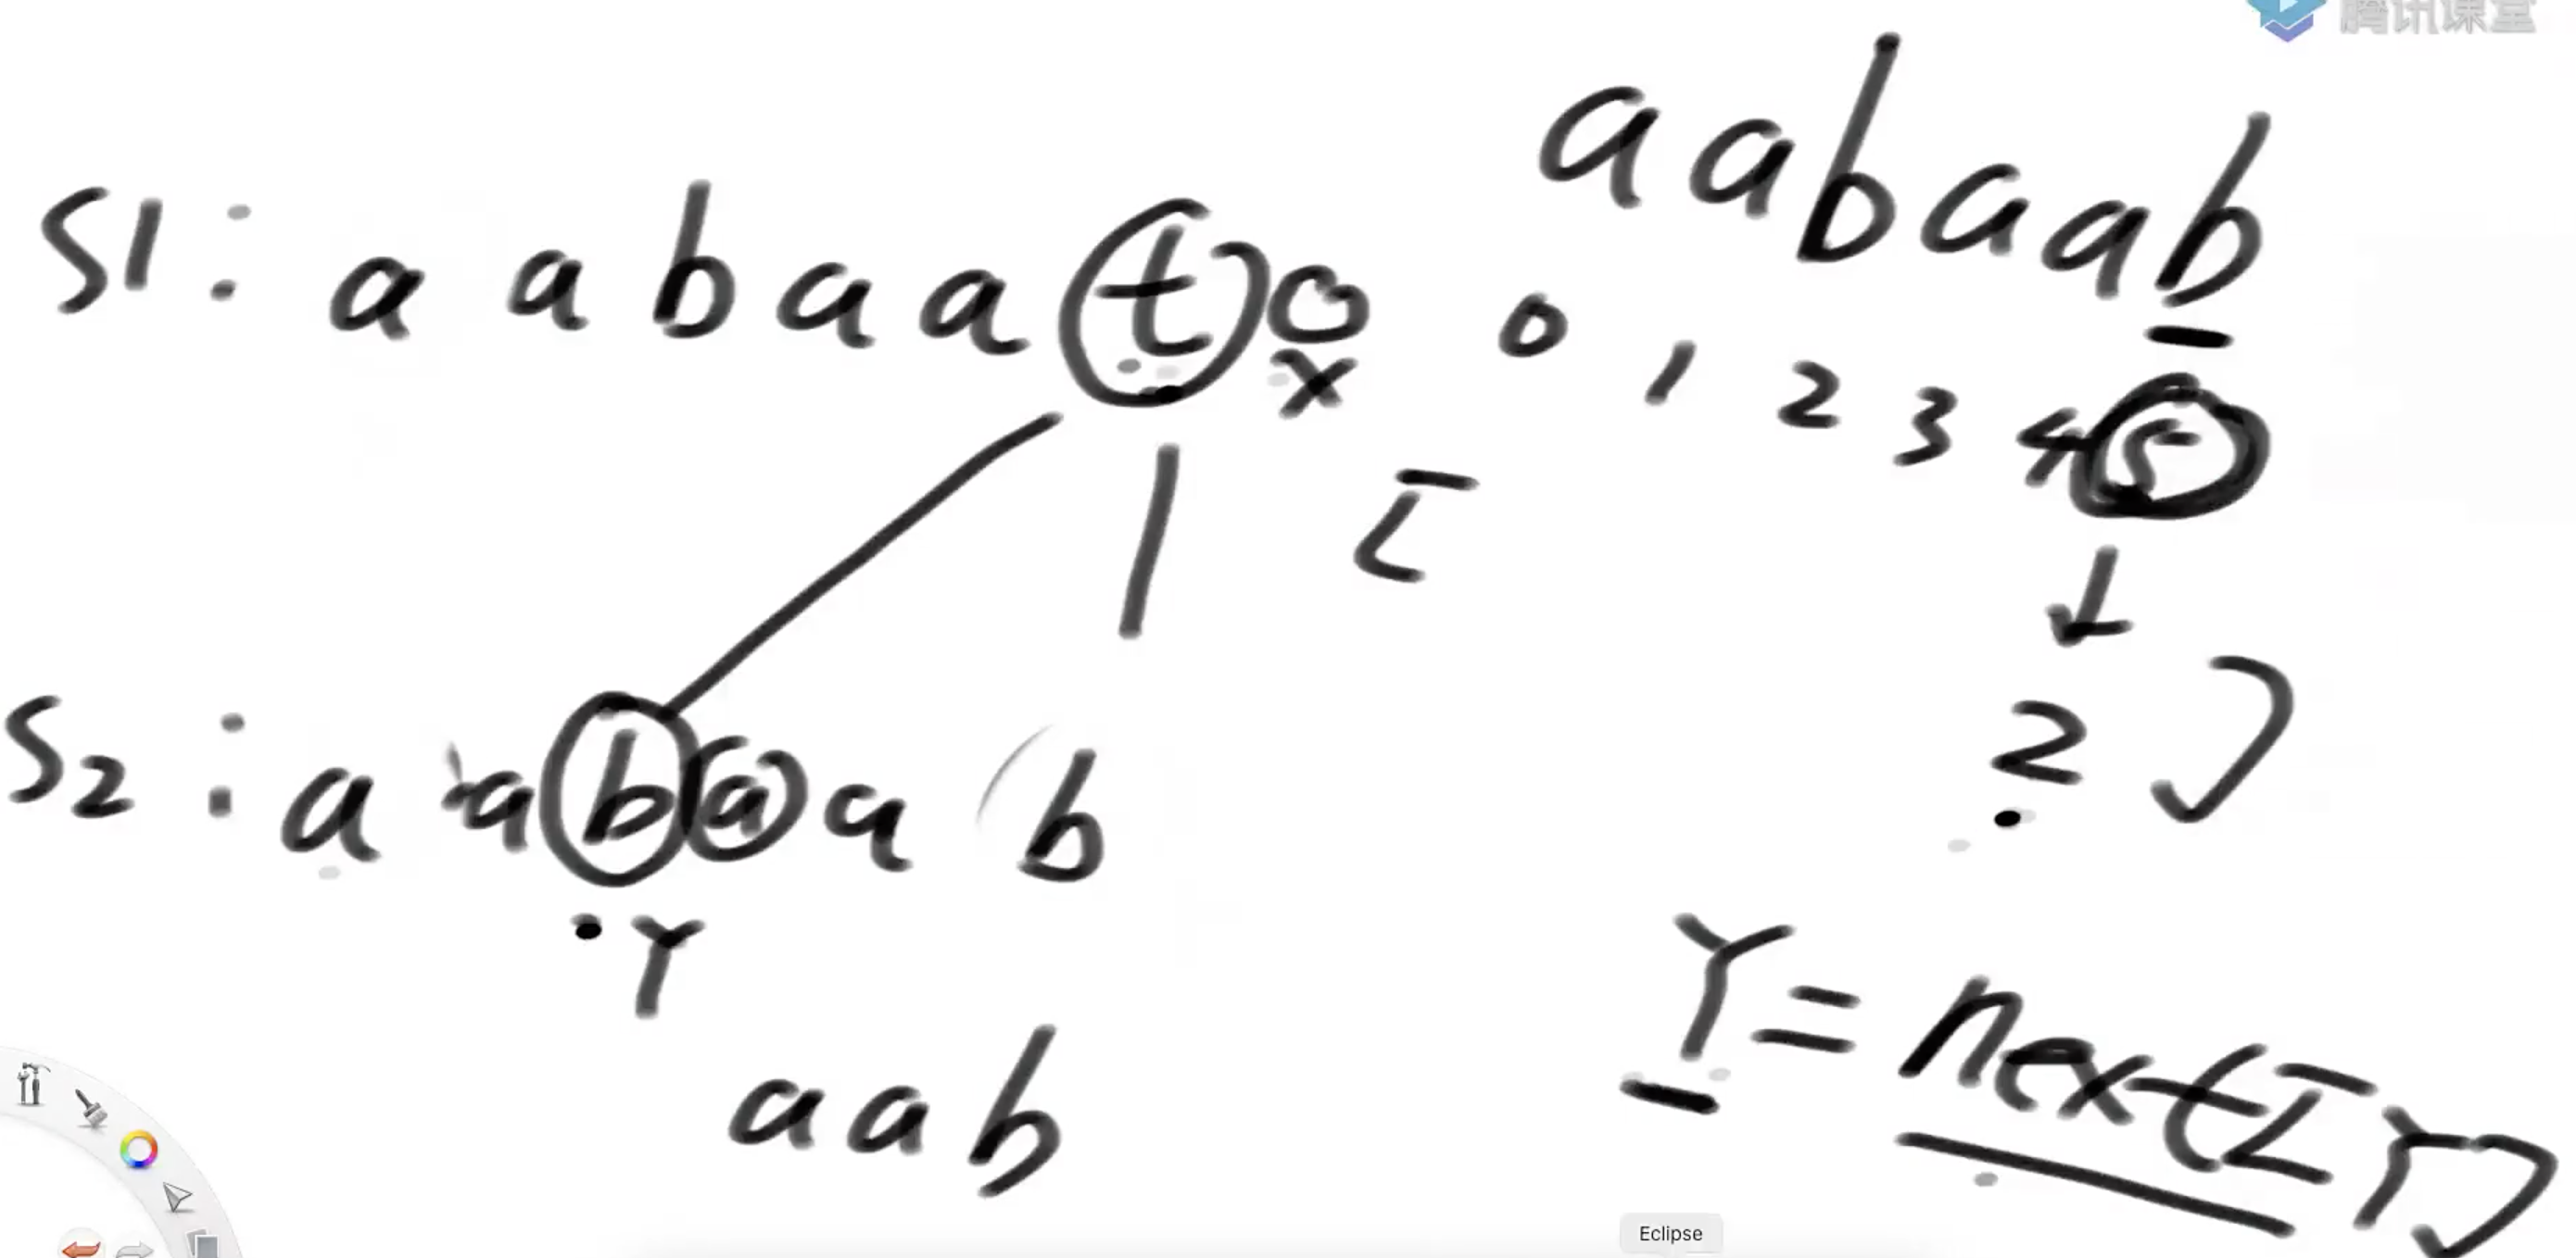 腾讯课堂
aabaab
S1: a a b a a t o
x
0 1 2 3 4 5
[
2 ]
S2: a a b a a b
Y
Y = next[Y]
aab
Eclipse